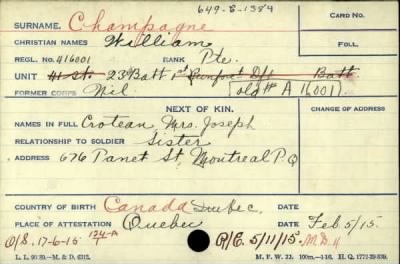 649-C-1384
SURNAME. Champagne
CARD NO.
CHRISTIAN NAMES William
FOLL.
REGL. NO. 416001 RANK Pte.
UNIT 41st. 23rd Batt 1st Batt
FORMER CORPS Nil (old # A 16001)
NEXT OF KIN.
CHANGE OF ADDRESS
NAMES IN FULL Croteau Mrs. Joseph
RELATIONSHIP TO SOLDIER Sister
ADDRESS 676 Panet St. Montreal P.Q
COUNTRY OF BIRTH Canada Quebec. DATE
PLACE OF ATTESTATION Quebec DATE Feb 5/15.
O/S. 17-6-15 R/E. 5/11/15. M.D. 4
L. L. 90/89.—M. & D. 6312. M. F. W. 22. 100m.—1-16. H. Q. 1772-39-839.